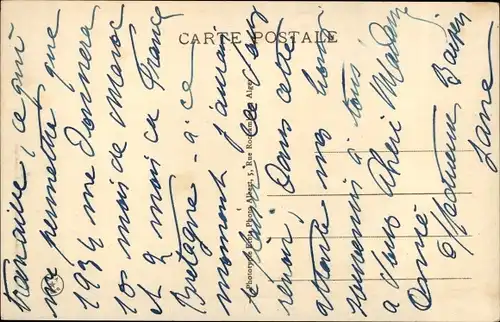 CARTE POSTALE
travaille, ce qui
me permettra que
1934 me donnera
10 mois de Maroc
et 2 mois en France
Bretagne - à ce
moment j'aurai
le plaisir de vous
revoir, Dans cette
attente mes bons
souvenirs à tous
a vous Chère Madame
Amitié
Baisers
Jane
Phototypie Photo Albert, 5, Rue Alger